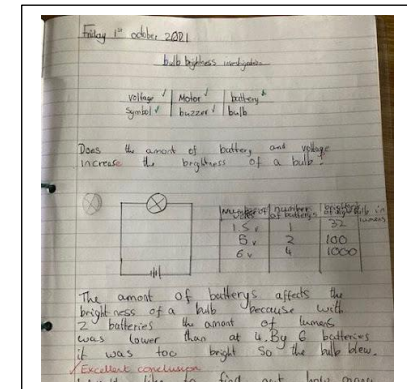 Friday 1st october 2021
bulb brightness investigation
voltage Motor battery
symbol buzzer bulb
Does the amont of battery and voltage
increase the brightness of a bulb.
Number of volts number of batterys brightness of light bulb in lumens
1.5 v 1 32
5 v 2 100
6 v 4 1000
The amont of batterys affects the
brightness of a bulb because with
2 batteries the amont of lumens
was lower than at 4. By 6 batteries
it was too bright so the bulb blew.
Excellent conclusion